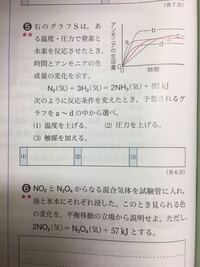 (各7点)
⑤ 右のグラフSは,あ
★★ る温度・圧力で窒素と
水素を反応させたとき,
時間とアンモニアの生
成量の変化を示す。
アンモニアの生成量
a
b
c
d
S
時間
N₂(気)+3H₂(気)=2NH₃(気)+92kJ
次のように反応条件を変えたとき,予想されるグ
ラフをa〜dの中から選べ。
(1) 温度を上げる。 (2) 圧力を上げる。
(3) 触媒を加える。
(1) (2) (3)
(各6点)
⑥ NO₂とN₂O₄からなる混合気体を試験管に入れ,
★★ 湯と氷水にそれぞれ浸した。このとき見られる色
の変化を,平衡移動の立場から説明せよ。ただし,
2NO₂(気)=N₂O₄(気)+57kJとする。